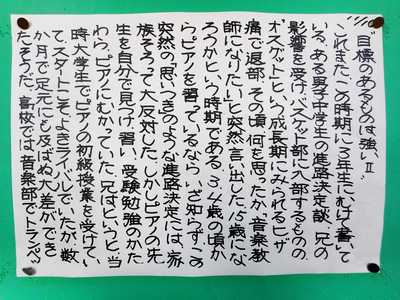 "目標のあるものは強い、Ⅱ"
これまた、この時期に3年生にむけ書いて
いる。ある男子中学生の進路決定談。兄の
影響を受けバスケット部に入部するものの
オスグットという成長期にみられるヒザ
痛で退部、その頃何を思ったか、音楽教
師になりたい!と突然言い出した。15歳にな
ろうかという時期である。3、4歳の頃か
らピアノを習っているならいざ知らず、この
突然の「思いつき」のような進路決定には、家
族そろって大反対した。しかしピアノの先
生を自分で見つけ、習い、受験勉強のかた
わら、ピアノにむかっていた。兄はというと、当
時大学生でピアノの初級授業を受けてい
て、スタートこそよきライバルでいたが、数
か月で足元にも及ばぬ大差ができ
たそうだ。高校では音楽部でトランペッ